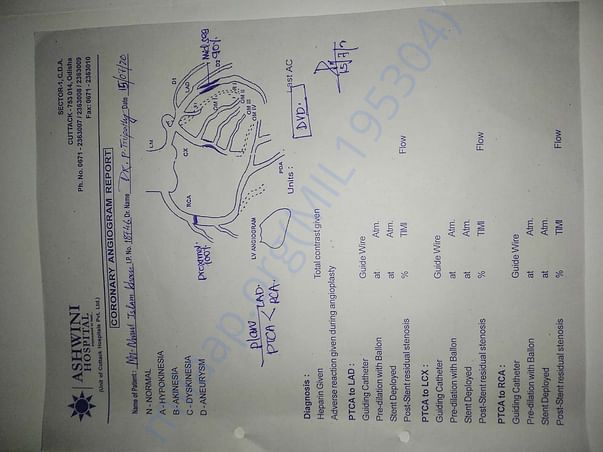 ASHWINI
HOSPITAL
(Unit of Cuttack Hospitals Pvt. Ltd.)
SECTOR-1, C.D.A.
CUTTACK - 753 014, Odisha
Ph. No. 0671 - 2363007 / 2363008 / 2363009
Fax: 0671 - 2363010
CORONARY ANGIOGRAM REPORT
Name of Patient: I.P. No. Dr. Name Dr. P. Tripathy Date 15/07/20
N - NORMAL
A - HYPOKINESIA
B - AKINESIA
C - DYSKINESIA
D - ANEURYSM
LM
D1
LAD
D2
Mid seg
90%
CX
OM I
OM II
OM III
OM IV
RCA
PDA
Proximal
100%
LV ANGIOGRAM
Plan
PTCA < LAD.
RCA.
DVD.
Last AC
Diagnosis :
Heparin Given
Units :
Total contrast given
Adverse reaction given during angioplasty
PTCA to LAD :
Guiding Catheter Guide Wire
Pre-dilation with Ballon at Atm.
Stent Deployed at Atm.
Post-Stent residual stenosis % TIMI Flow
PTCA to LCX :
Guiding Catheter Guide Wire
Pre-dilation with Ballon at Atm.
Stent Deployed at Atm.
Post-Stent residual stenosis % TIMI Flow
PTCA to RCA :
Guiding Catheter Guide Wire
Pre-dilation with Ballon at Atm.
Stent Deployed at Atm.
Post-Stent residual stenosis % TIMI Flow